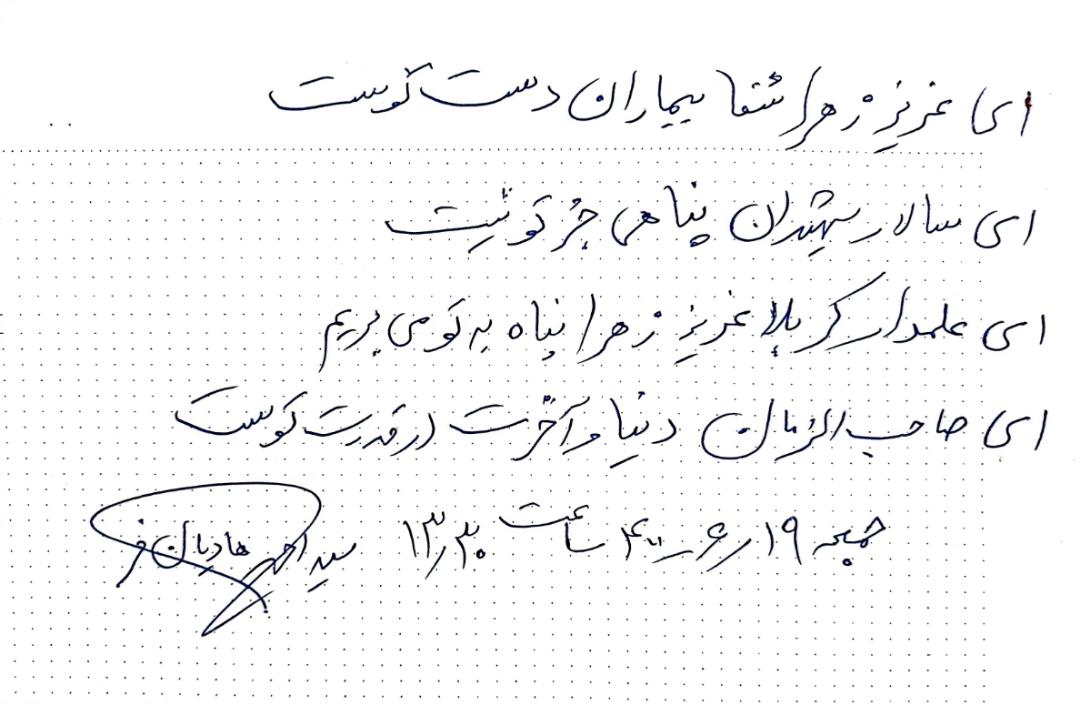 ای عزیز زهرا شفا بیماران دست توست
ای سالار شهیدان پناهی جز تو نیست
ای علمدار کربلا عزیز زهرا پناه به تو می بریم
ای صاحب الزمان دنیا و آخرت در قدرت توست
جمعه ۱۹ر۶ر۴۰۰ ساعت ۱۳٫۳۰ سید احمد هادیان فر